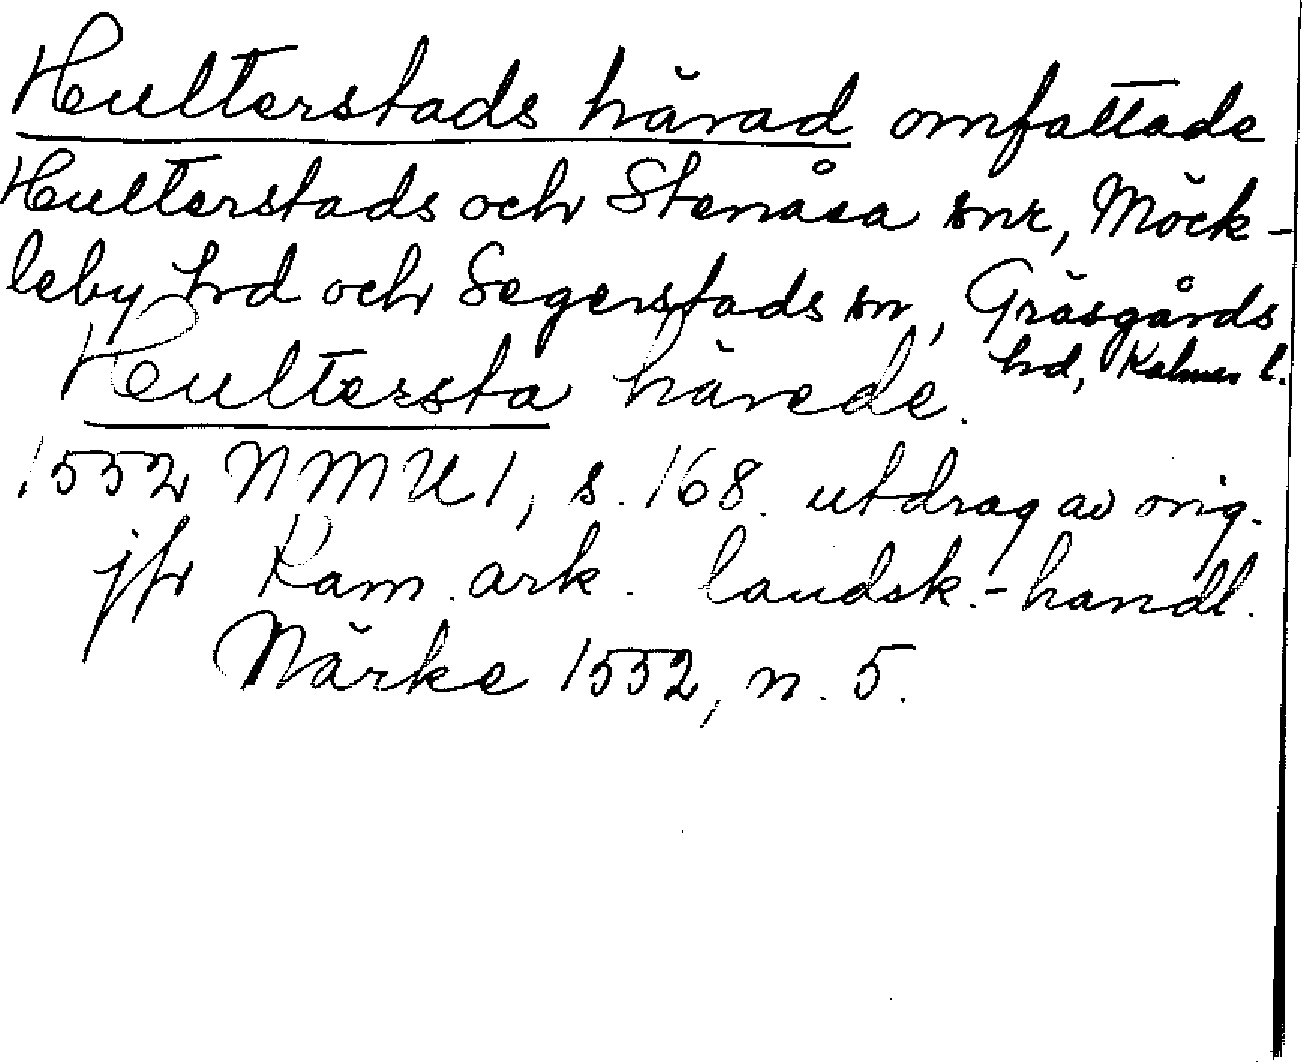 Hulterstads härad omfattade
Hulterstads och Stenåsa snr, Möck-
leby hd och Segerstads sn, Gräsgårds
hd, Kalmar l.
Hultersta härede.
1552 NMU 1, s. 168. utdrag av orig.
jfr Kam. ark. landsk.-handl.
Närke 1552, n. 5.